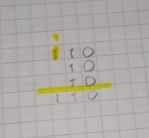 1
110
10
10
110